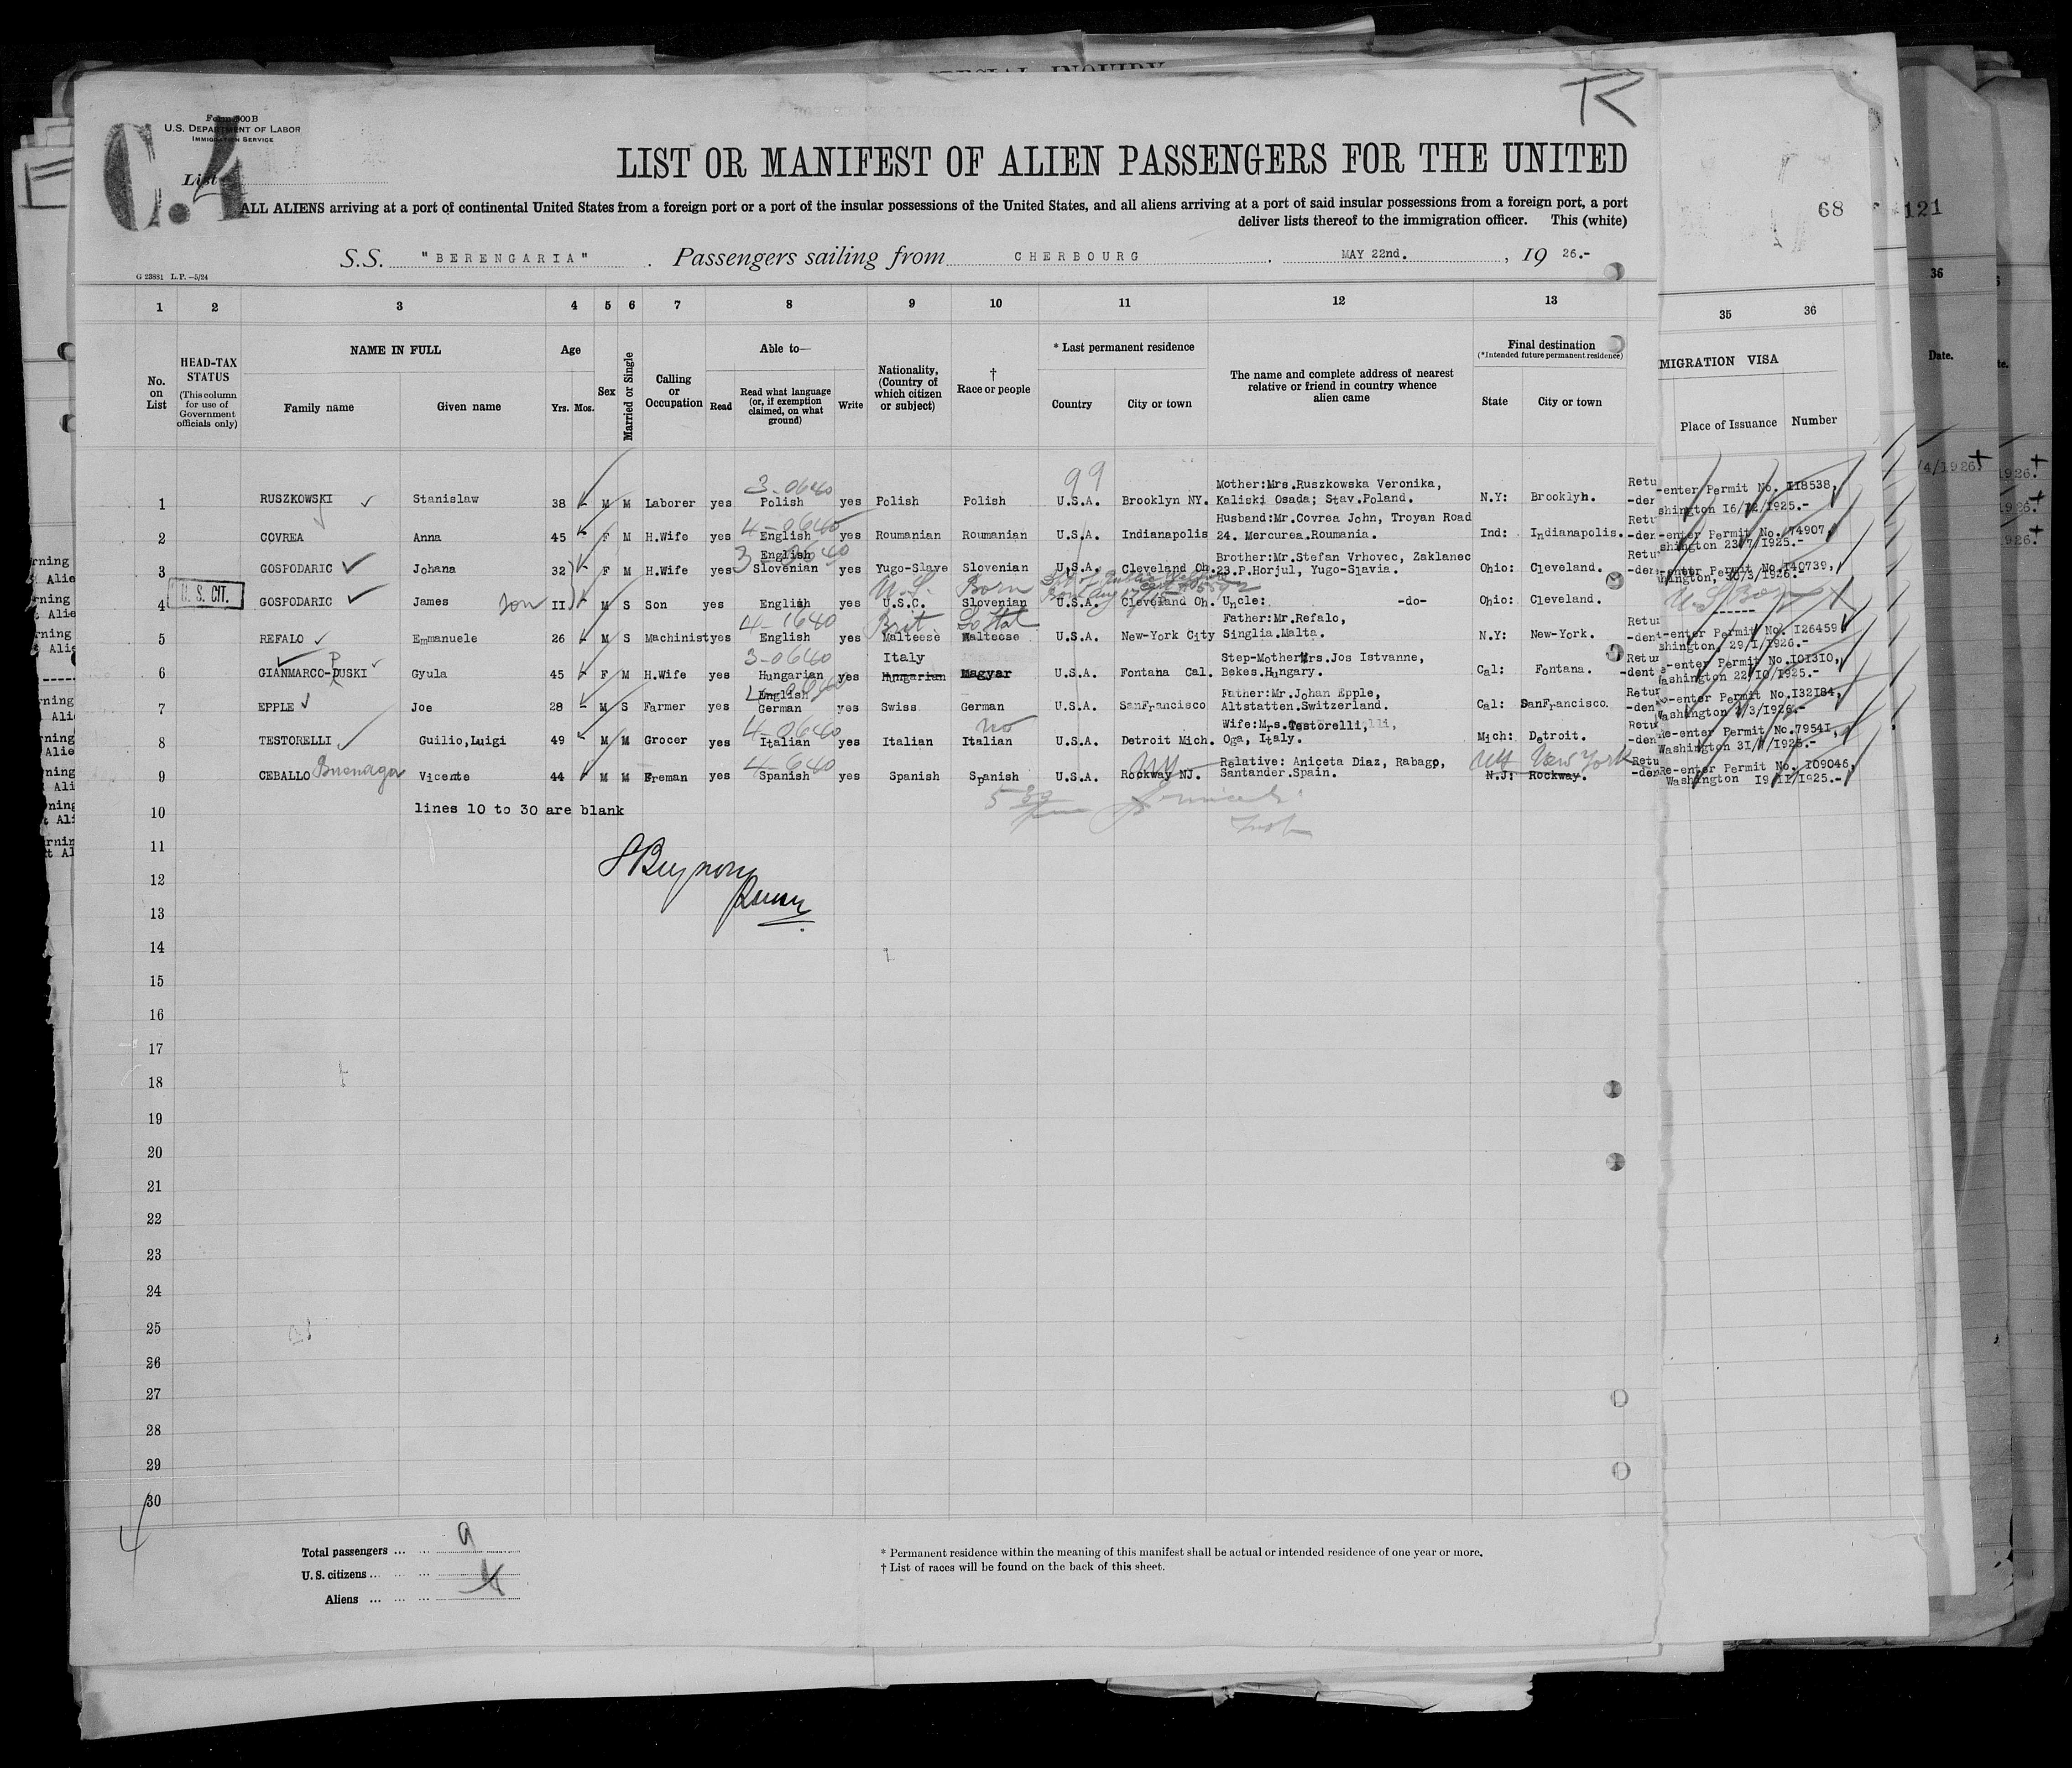 SPECIAL INQUIRY
R
C.4
Form 500B
U.S. DEPARTMENT OF LABOR
IMMIGRATION SERVICE
List
LIST OR MANIFEST OF ALIEN PASSENGERS FOR THE UNITED
ALL ALIENS arriving at a port of continental United States from a foreign port or a port of the insular possessions of the United States, and all aliens arriving at a port of said insular possessions from a foreign port, a port
deliver lists thereof to the immigration officer. This (white)
68 121
S.S. "BERENGARIA". Passengers sailing from CHERBOURG. MAY 22nd., 19 26.-
G 23881 L.P.-5/24
1 2 3 4 5 6 7 8 9 10 11 12 13 35 36 36
No. on List
HEAD-TAX STATUS (This column for use of Government officials only)
NAME IN FULL
Family name Given name
Age
Yrs. Mos.
Sex
Married or Single
Calling or Occupation
Able to—
Read
Read what language (or, if exemption claimed, on what ground)
Write
Nationality, (Country of which citizen or subject)
† Race or people
* Last permanent residence
Country City or town
The name and complete address of nearest relative or friend in country whence alien came
Final destination
(*Intended future permanent residence)
State City or town
MIGRATION VISA
Place of Issuance Number
Date.
99
3-0640
1 RUSZKOWSKI Stanislaw 38 - M M Laborer yes Polish yes Polish Polish U.S.A. Brooklyn NY. Mother:Mrs.Ruszkowska Veronika, Kaliski Osada; Stav.Poland. N.Y: Brooklyn. Retu -der -enter Permit No. II8538, shington I6/I2/I925.-
4-0640
2 COVREA Anna 45 - F M H.Wife yes English yes Roumanian Roumanian U.S.A. Indianapolis Husband:Mr.Covrea John, Troyan Road 24. Mercurea.Roumania. Ind: Indianapolis. Retu -der -enter Permit No. 74907, shington 23/7/I925.-
3-0640
3 GOSPODARIC Johana 32 - F M H.Wife yes English Slovenian yes Yugo-Slave Slovenian U.S.A. Cleveland Oh. Brother:Mr.Stefan Vrhovec, Zaklanec 23.P.Horjul, Yugo-Slavia. Ohio: Cleveland. Retu -der -enter Permit No. I40739, hington, 30/3/I926.-
U. S. CIT.
U.S. Born
4 GOSPODARIC James son II - M S Son yes English yes U.S.C. Slovenian U.S.A. Cleveland Oh. Uncle: -do- Ohio: Cleveland. U S Born ------
4-1640 Brit
5 REFALO Emmanuele 26 - M S Machinist yes English yes Malteese Malteese U.S.A. New-York City Father:Mr.Refalo, Singlia.Malta. N.Y: New-York. Retu -dent -enter Permit No. I26459 shington, 29/I/I926.-
3-0640 Italy
6 GIANMARCO-DUSKI Gyula 45 - F M H.Wife yes Hungarian yes Hungarian Magyar U.S.A. Fontana Cal. Step-Mother:Mrs.Jos Istvanne, Bekes.Hungary. Cal: Fontana. Retur -dent -enter Permit No.IOI3IO, Washington 22/IO/I925.-
7 EPPLE Joe 28 - M S Farmer yes English German yes Swiss German U.S.A. SanFrancisco Father:Mr.Johan Epple, Altstatten.Switzerland. Cal: SanFrancisco. Retur -den -enter Permit No.I32I84, Washington 2/3/I926.-
4-0640 no
8 TESTORELLI Guilio,Luigi 49 - M M Grocer yes Italian yes Italian Italian U.S.A. Detroit Mich. Wife:Mrs.Testorelli, Oga, Italy. Mich: Detroit. Retu -den Re-enter Permit No.7954I, Washington
4-640 NY
9 CEBALLO Buenaga Vicente 44 - M M Freman yes Spanish yes Spanish Spanish U.S.A. Rockway NJ. Relative: Aniceta Diaz, Rabago, Santander.Spain. New York N.J: Rockway. Retu -den Re-enter Permit No. IO9046, Washington I9/II/I925.-
10 lines 10 to 30 are blank
11
12
13
14
15
16
17
18
19
20
21
22
23
24
25
26
27
28
29
30
4
Total passengers ... 9
U. S. citizens ...
Aliens ...
* Permanent residence within the meaning of this manifest shall be actual or intended residence of one year or more.
† List of races will be found on the back of this sheet.